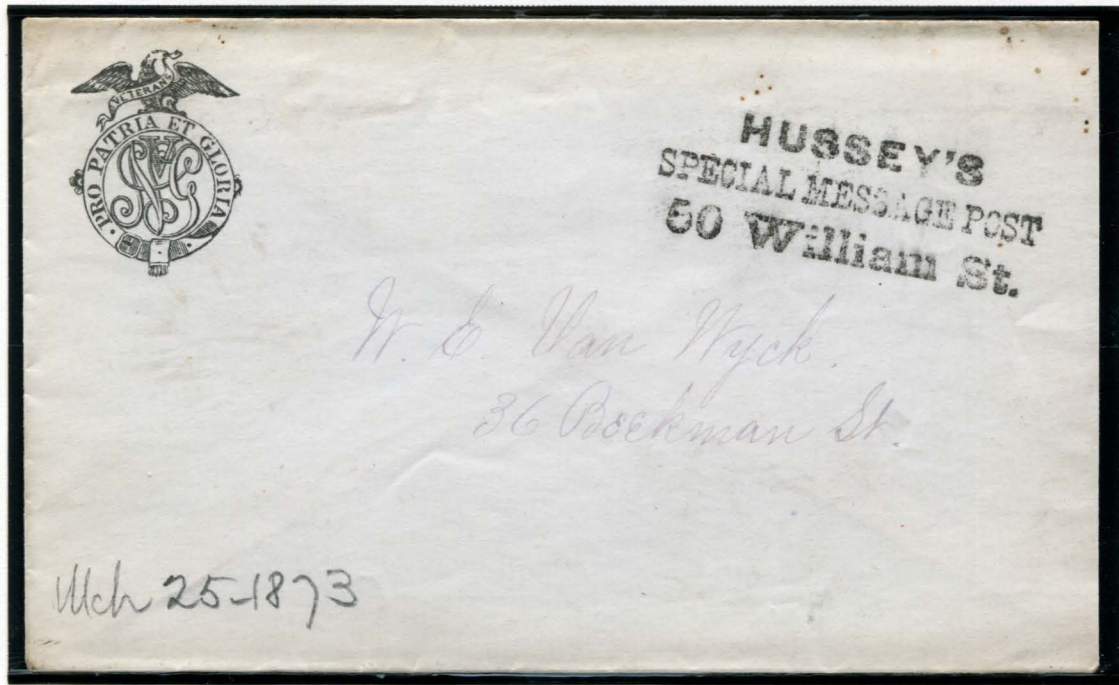 VETERANS
PRO PATRIA ET GLORIA
HUSSEY'S
SPECIAL MESSAGE POST
50 William St.
W. E. Van Wyck.
36 Beekman St.
Mch 25-1873